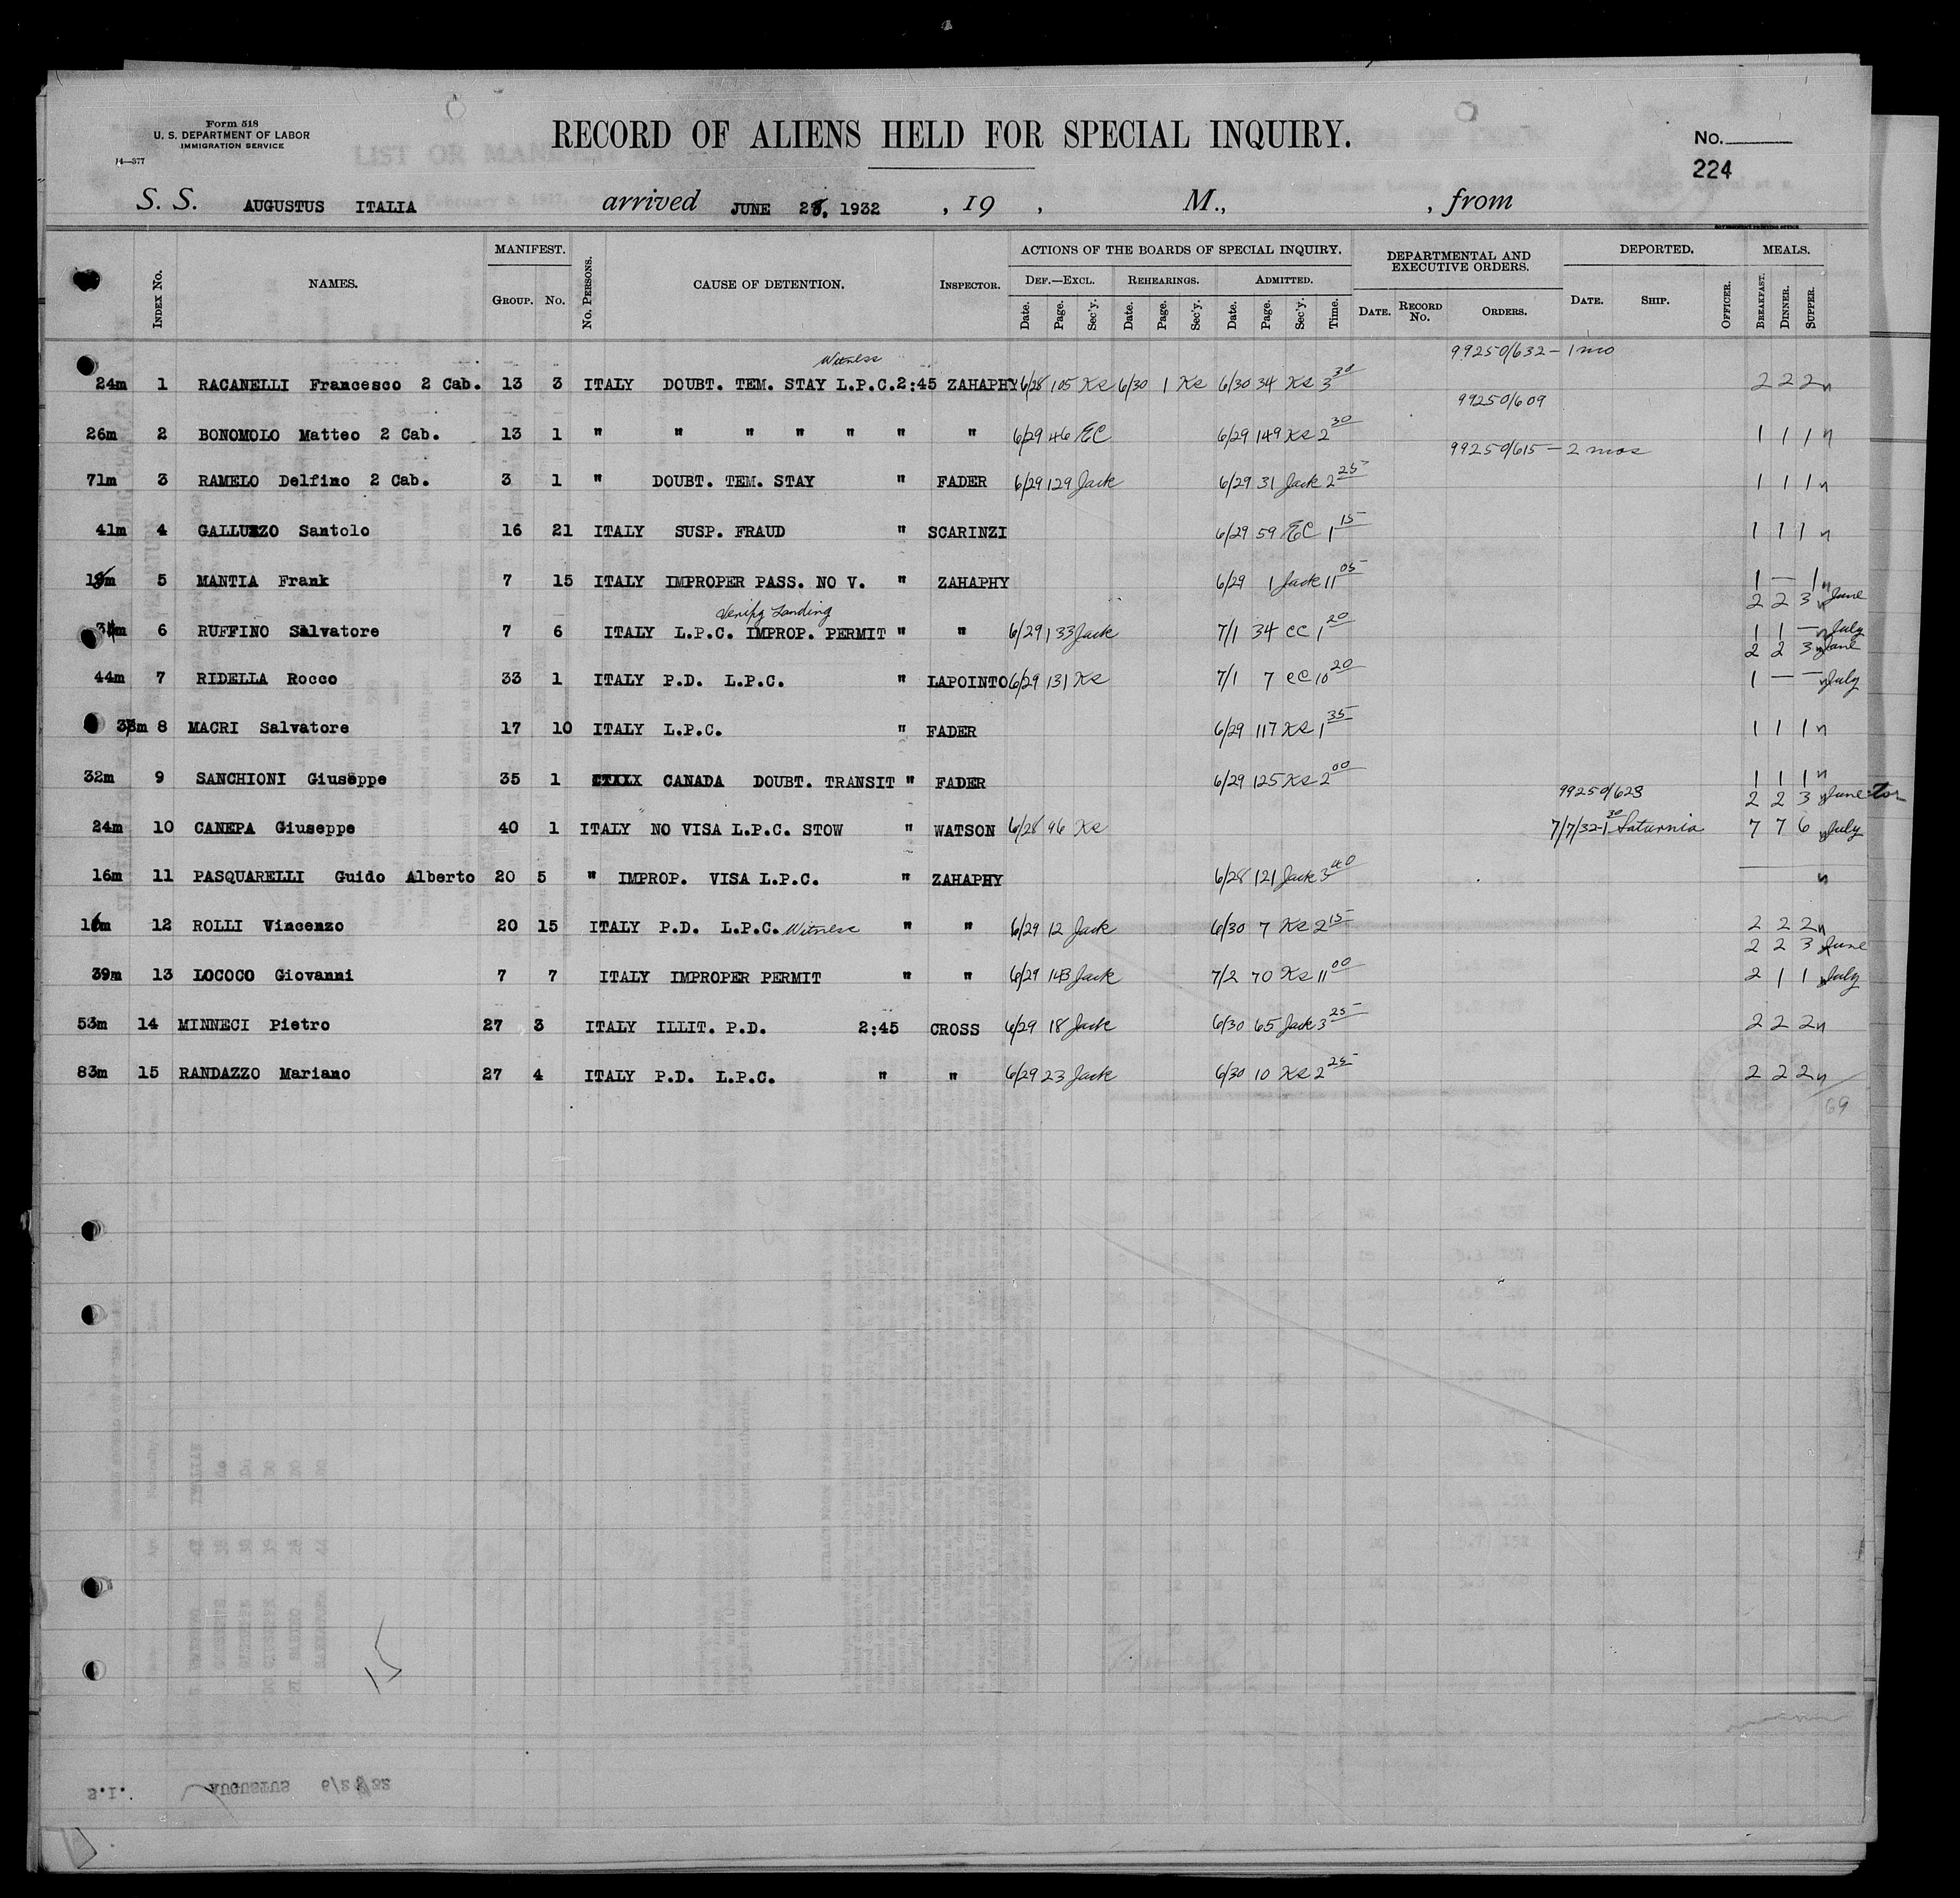 Form 518
U. S. DEPARTMENT OF LABOR
IMMIGRATION SERVICE
14—377
RECORD OF ALIENS HELD FOR SPECIAL INQUIRY.
No.
224
S. S. AUGUSTUS ITALIA arrived JUNE 28, 1932 , 19 , M., , from
Index No. NAMES. MANIFEST. Group. No. No. Persons. CAUSE OF DETENTION. Inspector. ACTIONS OF THE BOARDS OF SPECIAL INQUIRY. Def.—Excl. Date. Page. Sec'y. Rehearings. Date. Page. Sec'y. Admitted. Date. Page. Sec'y. Time. DEPARTMENTAL AND EXECUTIVE ORDERS. Date. Record No. Orders. DEPORTED. Date. Ship. Officer. MEALS. Breakfast. Dinner. Supper.
Witness 99250/632 - 1 mo
24m 1 RACANELLI Francesco 2 Cab. 13 3 ITALY DOUBT. TEM. STAY L.P.C. 2:45 ZAHAPHY 6/28 105 Ks 6/30 1 Ks 6/30 34 Ks 3 30 2 2 2 n
99250/609
26m 2 BONOMOLO Matteo 2 Cab. 13 1 " " " " " " " 6/29 46 EC 6/29 149 Ks 2 30 1 1 1 n
99250/615 - 2 mos
71m 3 RAMELO Delfino 2 Cab. 3 1 " DOUBT. TEM. STAY " FADER 6/29 129 Jack 6/29 31 Jack 2 25 1 1 1 n
41m 4 GALLUZZO Santolo 16 21 ITALY SUSP. FRAUD " SCARINZI 6/29 59 EC 1 15 1 1 1 n
5 MANTIA Frank 7 15 ITALY IMPROPER PASS. NO V. " ZAHAPHY 6/29 1 Jack 11 05 1 — 1 n
Verify Landing 2 2 3 n June
6 RUFFINO Salvatore 7 6 ITALY L.P.C. IMPROP. PERMIT " " 6/29 133 Jack 7/1 34 CC 1 20 1 1 — n July
2 2 3 n June
44m 7 RIDELLA Rocco 33 1 ITALY P.D. L.P.C. " LAPOINTO 6/29 131 Ks 7/1 7 CC 10 20 1 — — n July
8 MACRI Salvatore 17 10 ITALY L.P.C. " FADER 6/29 117 Ks 1 35 1 1 1 n
32m 9 SANCHIONI Giuseppe 35 1 CANADA DOUBT. TRANSIT " FADER 6/29 125 Ks 2 00 1 1 1 n
99250/628 2 2 3 n June
24m 10 CANEPA Giuseppe 40 1 ITALY NO VISA L.P.C. STOW " WATSON 6/28 96 Ks 7/7/32-1 30 Saturnia 7 7 6 n July
16m 11 PASQUARELLI Guido Alberto 20 5 " IMPROP. VISA L.P.C. " ZAHAPHY 6/28 121 Jack 3 40 n
12 ROLLI Vincenzo 20 15 ITALY P.D. L.P.C. Witness " " 6/29 12 Jack 6/30 7 Ks 2 15 2 2 2 n
2 2 3 June
39m 13 LOCOCO Giovanni 7 7 ITALY IMPROPER PERMIT " " 6/29 143 Jack 7/2 70 Ks 11 00 2 1 1 n July
53m 14 MINNECI Pietro 27 3 ITALY ILLIT. P.D. 2:45 CROSS 6/29 18 Jack 6/30 65 Jack 3 25 2 2 2 n
83m 15 RANDAZZO Mariano 27 4 ITALY P.D. L.P.C. " " 6/29 23 Jack 6/30 10 Ks 2 25 2 2 2 n
69
15
S.I. AUGUSTUS